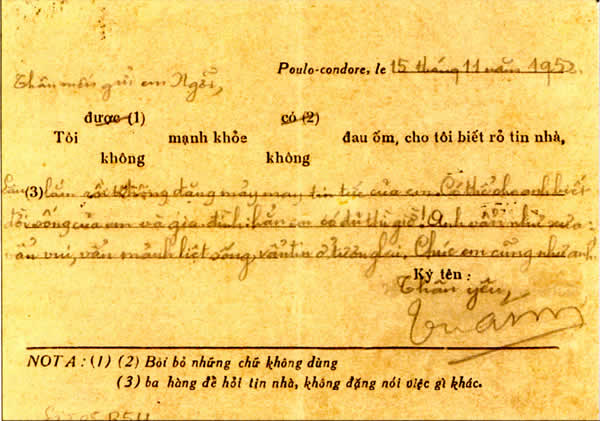 Poulo-condore, le 15 tháng 11 năm 195
Thân mến gửi em Ngôi,
được (1) có (2)
Tôi mạnh khỏe đau ốm, cho tôi biết rỏ tin nhà,
không không
(3) lắm rồi không đặng mảy may tin tức của em. Có thể cho anh biết
đời sống của em và gia đình hẳn em có đủ thì giờ! Anh vẫn như xưa:
vẫn vui, vẫn mảnh liệt sống, vẫn tin ở tương lai. Chúc em cũng như anh.
Ký tên:
Thân yêu,
NOTA: (1) (2) Bôi bỏ những chữ không dùng
(3) ba hàng để hỏi tin nhà, không đặng nói việc gì khác.